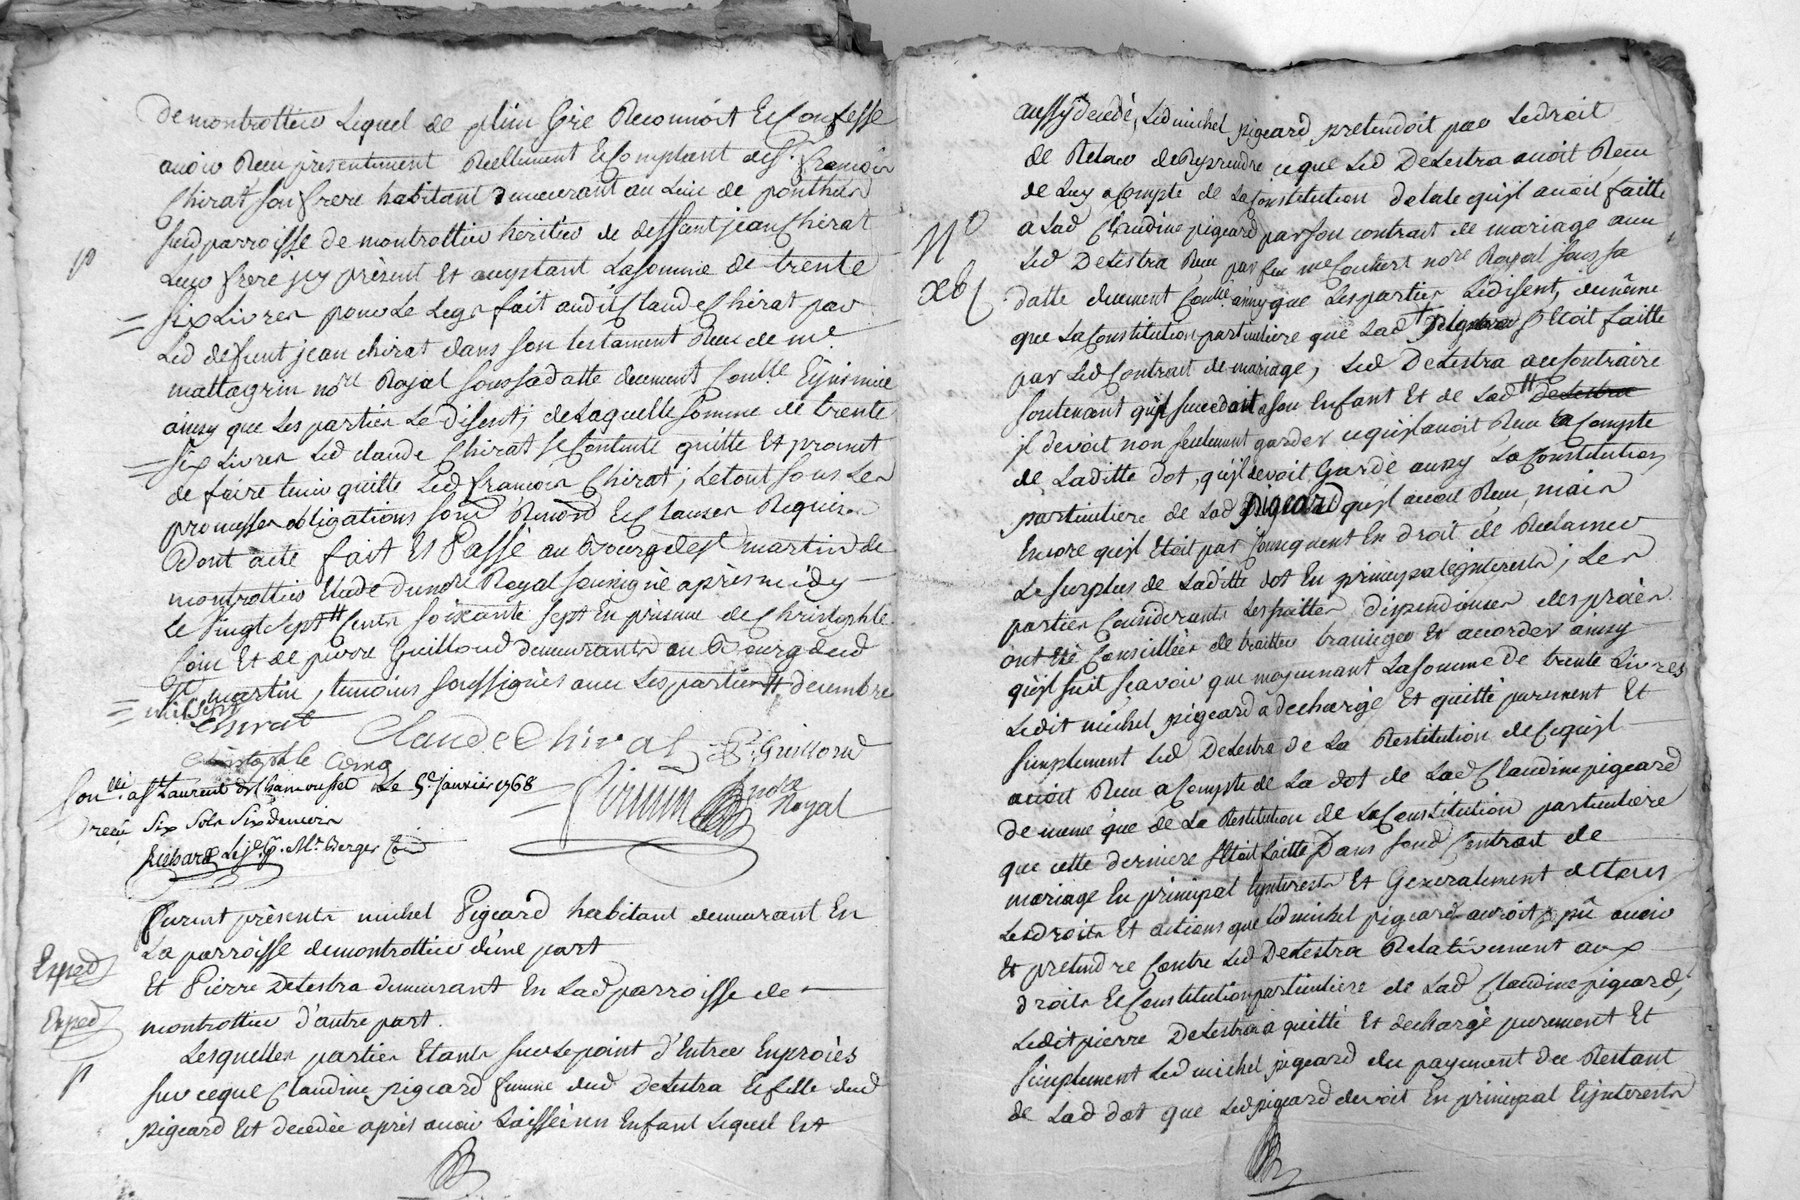 de montrottier Lequel de plein Gré Reconnoit Et Confesse
avoir Reçu présentement Reellement Et Comptant de Sr. françois
Chirat son frere habitant demeurant au Lieu de ponthus
susd parroisse de montrottier héritier de deffunt jean Chirat
Leur frere jcy présent Et acceptant La somme de trente
six Livres pour Le Legs fait audit Claude Chirat par
Led défunt jean chirat dans son testament Reçu de me.
mattagrin nore Royal sous sa datte deuement Coullé Et jnsinué
ainsy que Les parties Le disent; de Laquelle somme de trente
six Livres Led claude Chirat se Contente quitte Et promet
de faire tenir quitte Led françois Chirat; Le tout sous Les
promesses obligations soumd Renond Et Clauses Requises
Dont acte fait Et Passé au Bourg de St martin de
montrottier Etude du nore Royal soussigné après midy
Le Vingt sept # Cents soixante sept En présence de Christophle
Coin Et de pierre Guilloud demeurants au Bourg dud
St martin, temoins soussignés avec Les parties # decembre
mil sept
Chirat Claude Chirat P. Guilloud
Christophle Coing
nore Royal
Conllé a St Laurent de Chamousset Le 5e janvier 1768
Reçu Six Sols Six deniers
Richard
Furent présents michel Pigeard habitant demeurant En
La parroisse de montrottier d'une part
Exped
Et Pierre Delestra demeurant En Lad parroisse de
Exped
montrottier d'autre part.
Lesquelles parties Etants sur Le point d'Entrer En procès
sur ce que Claudine pigeard femme dud Delestra Et fille dud
pigeard Est decédée après avoir Laissé un Enfant Lequel Est
aussy decedé, Led michel pigeard pretendoit par Le droit
de Retour de Reprendre ce que Led Delestra avoit Reçu
de Luy a Compte de La Constitution dotale qu'jl avoit faitte
No
a Lad Claudine pigeard par son contrat de mariage avec
Led Delestra Reçu par feu me nore Royal sous sa
datte deuement Coullé ainsy que Les parties Le disent, de même
que La Constitution particuliere que Lad s'Etoit faitte
par Led Contrat de mariage, Led Delestra au Contraire
soutenant qu'jl succedoit a son Enfant Et de Lad # delestra
jl devoit non seulement garder ce qu'jl avoit Reçu a Compte
de Laditte dot, qu'jl devoit Garder aussy La Constitution
particuliere de Lad pigeard qu'jl avoit Reçu, mais
Encore qu'jl Etoit par Consequent En droit de Reclamer
Le surplus de Laditte dot En principal Et jnterests; Les
parties Considerants Les suittes dispendieuses des procès
ont Eté Conseillées de traitter transiger Et accorder ainsy
qu'jl suit sçavoir que moyennant La somme de trente Livres
Ledit michel pigeard a dechargé Et quitté purement Et
simplement Led Delestra de La Restitution de ce qu'jl
avoit Reçu a Compte de La dot de Lad Claudine pigeard
de meme que de La Restitution de La Constitution particuliere
que cette derniere s'Etoit faitte Dans Sond Contrat de
mariage En principal Et jnterests Et Generalement de tous
Les droits Et actions que Led michel pigeard auroit pû avoir
Et pretendre Contre Led Delestra Relativement aux
droits Et Constitution particuliere de Lad Claudine pigeard,
Ledit pierre Delestra a quitté Et dechargé purement Et
simplement Led michel pigeard du payement du Restant
de Lad dot que Led pigeard devoit En principal Et jnterests